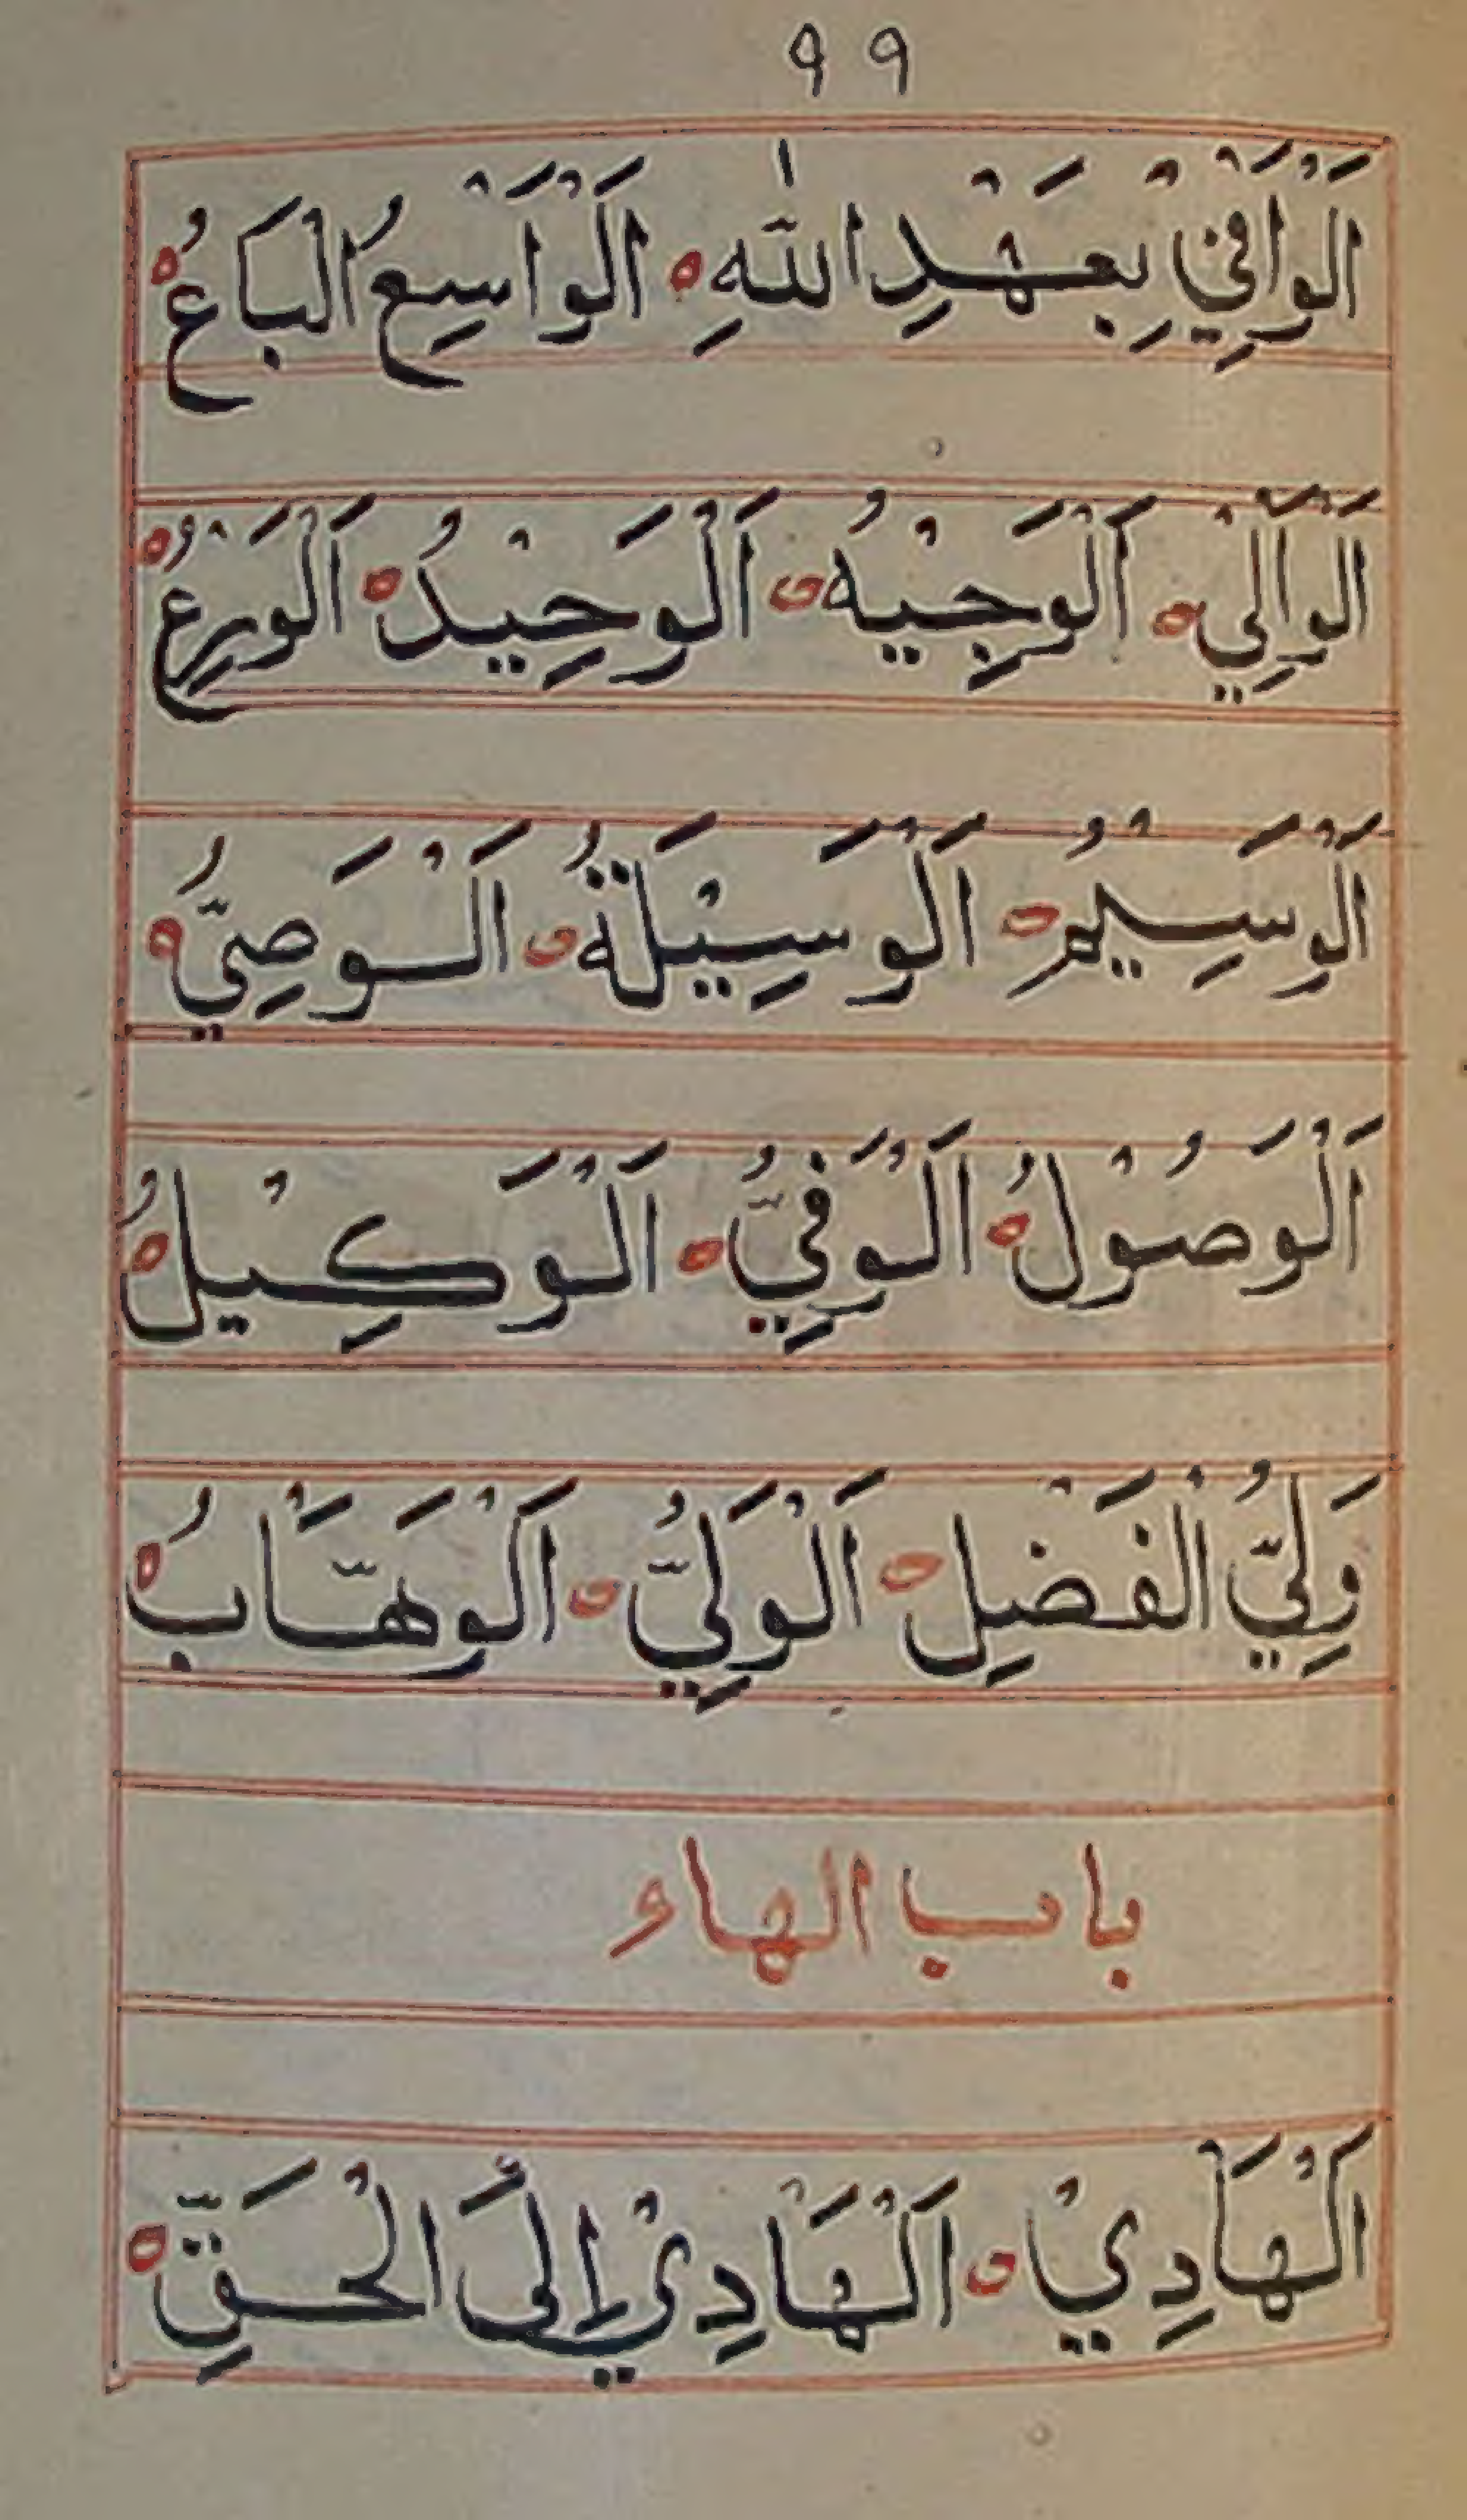 ٩٩
اَلْوَافِيْ بِعَهْدِ اللّٰهِ ه اَلْوَاسِعُ الْبَاعُ ه
اَلْوَالِي ه اَلْوَجِيْهُ ه اَلْوَحِيْدُ ه اَلْوَرِعُ ه
اَلْوَسِيْمُ ه اَلْوَسِيْلَةُ ه اَلْوَصِيُّ ه
اَلْوَصُوْلُ ه اَلْوَفِيُّ ه اَلْوَكِيْلُ ه
وَلِيُّ الْفَضْلِ ه اَلْوَلِيُّ ه اَلْوَهَّابُ ه
باب الهاء
اَلْهَادِيْ ه اَلْهَادِيْ إِلَى الْحَقِّ ه